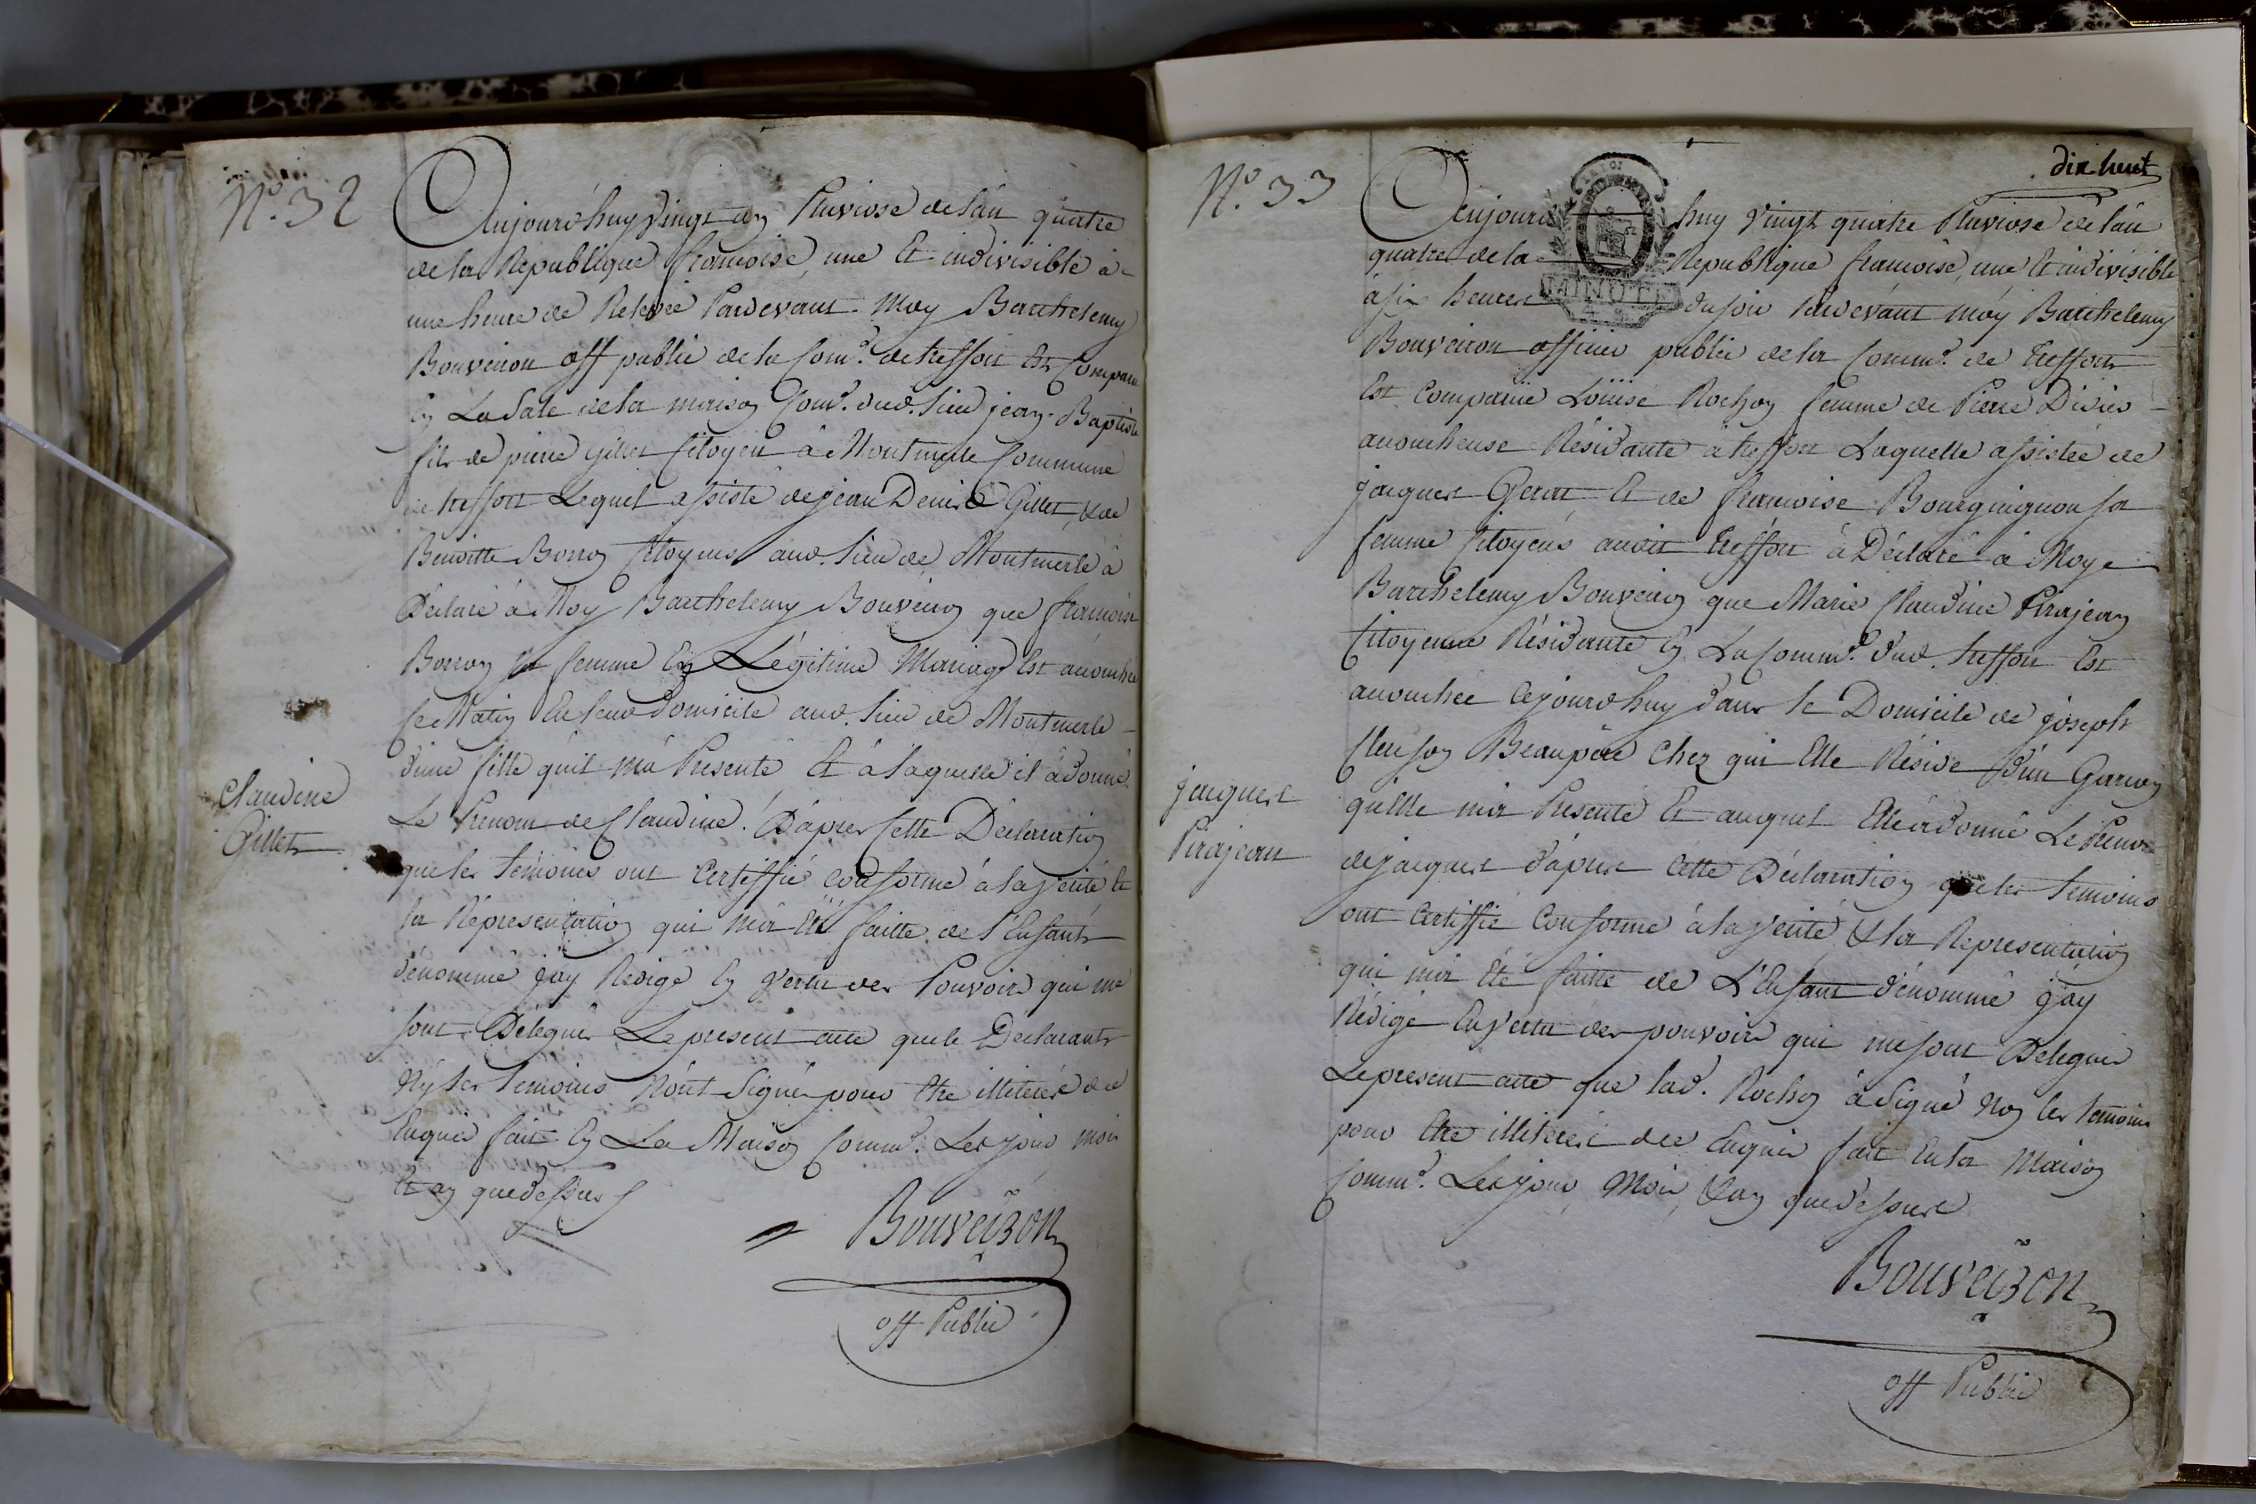 N.º 32
Aujourd'huy vingt un Pluviose de l'an quatre
de la Republique francoise, une Et indivisible à
une heure de Relevée Pardevant Moy Barthelemy
Bouveiron off public de la Com.e de treffort Est Comparu
En La Sale de la maison Com.e dud. lieu jean-Baptiste
fils de pierre Gillet Citoyen à Montmerle Commune
de treffort Lequel assisté de jean Denis Gillet, & de
Benoitte Borron Citoyens aud. lieu de Montmerle à
Déclaré à Moy Barthelemy Bouveiron que francoise
Borron sa femme En Légitime Mariage Est acouchée
Ce Matin En leur domicile aud. lieu de Montmerle
d'une fille qu'il m'a Presenté Et à laquelle il à donné
Le Prenom de Claudine. D'apres Cette Déclaration
que les Temoins ont Certiffié conforme à la verité Et
la Représentation qui m'a Eté faitte de l'Enfant
dénommé j'ay Redigé En vertu des Pouvoirs qui me
sont Délegués Le present acte que le Declarant
Ny les Temoins N'ont Signé pour Etre illiterés de ce
Enquis fait En La Maison Comm.e Les jour mois
Et an que dessus
Claudine
Gillet
Bouveiron
off Public
dix huit
N.º 33
Aujourd'huy vingt quatre Pluviose de l'an
quatre de la Republique francoise, une Et indivisible
à six heures du soir Pardevant moy Barthelemy
MINUTE
Bouveiron officier public de la Comm.e de treffort
Est Comparüe Loüise Rochon femme de Pierre Didier
acoucheuse Résidante à treffort Laquelle assistée de
jacques Gerat Et de francoise Bourguignon sa
femme Citoyens audit treffort à Déclaré à Moy
Barthelemy Bouveiron que Marie Claudine Pirajean
Citoyenne Résidante En La Comm.e dud. treffort Est
acouchée Cejourd'huy dans le Domicile de joseph
Cler son Beaupere Chez qui Elle Réside d'un Garcon
qu'Elle m'a Presenté Et auquel Elle à donné Le Prenom
de jacques d'apres Cette Déclaration que les Temoins
ont Certiffié Conforme à la verité, & la Representation
qui m'a Eté faitte de L'Enfant dénommé j'ay
Rédigé En vertu des pouvoirs qui me sont Delegués
Le present acte que lad. Rochon à Signé Non les temoins
pour Etre illiterés de ce Enquis fait En la Maison
Comm.e Les jour, Mois, & an que dessus
jacques
Pirajean
Bouveiron
off Public